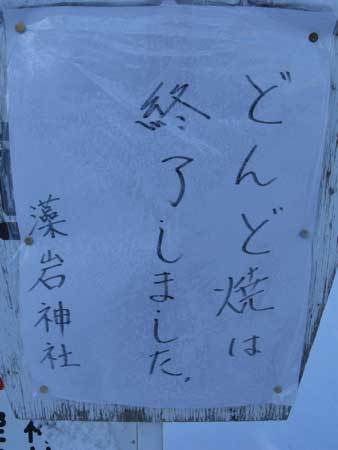 どんど焼は
終了しました。
藻岩神社